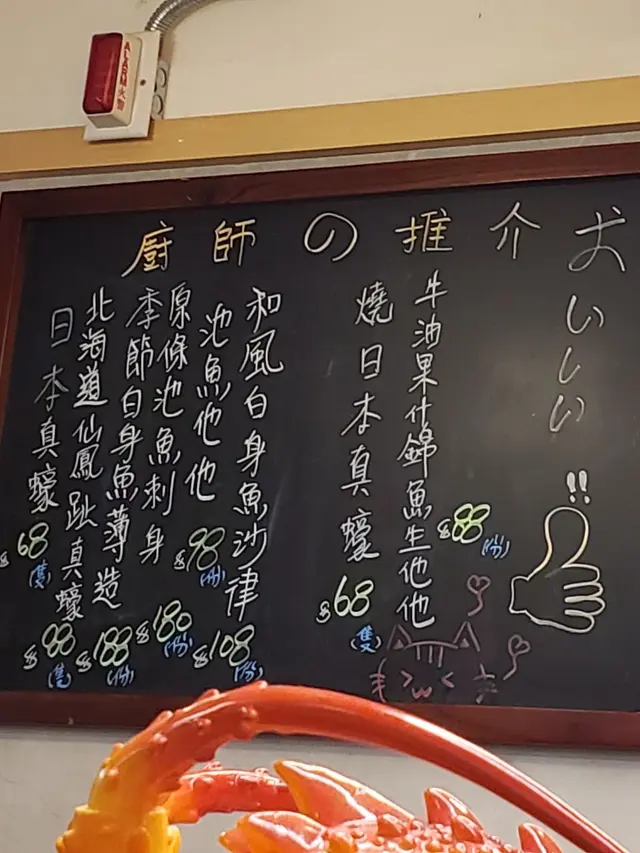 ALARM 火警
廚師の推介
おいしい!!
牛油果什錦魚生他他 $88 (份)
燒日本真蠔 $68 (隻)
和風白身魚沙律 $108 (份)
池魚他他 $98 (份)
原條池魚刺身 $180 (份)
季節白身魚薄造 $188 (份)
北海道仙鳳趾真蠔 $88 (隻)
日本真蠔 $68 (隻)